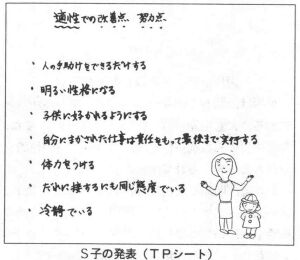 適性での改善点 努力点
・人の手助けをできるだけする
・明るい性格になる
・子供に好かれるようにする
・自分にまかされた仕事は責任をもって最後まで実行する
・体力をつける
・だれに接するにも同じ態度でいる
・冷静でいる
S子の発表（TPシート）